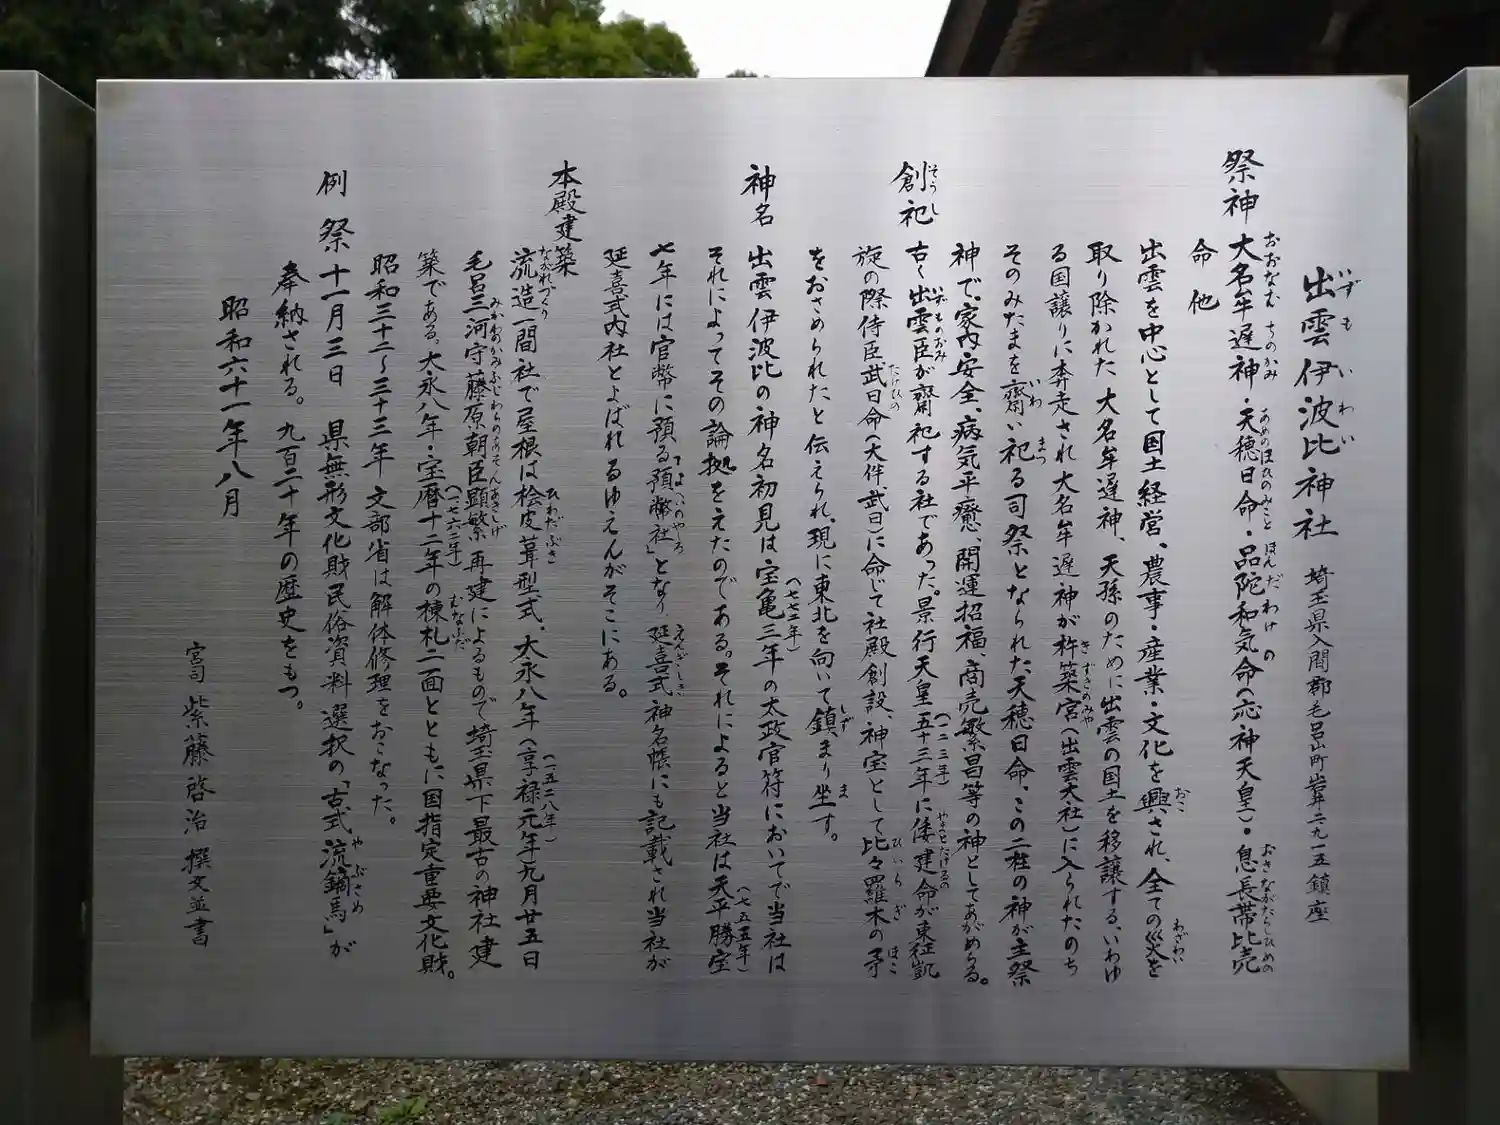 出雲伊波比神社 埼玉県入間郡毛呂山町岩井二九一五鎮座
祭神 大名牟遅神・天穂日命・品陀和気命(応神天皇)・息長帯比売
命 他
出雲を中心として国土経営、農事・産業・文化を興され、全ての災を
取り除かれた大名牟遅神、天孫のために出雲の国土を移譲する、いわゆ
る国譲りに奔走され大名牟遅神が杵築宮(出雲大社)に入られたのち
そのみたまを齋い祀る司祭となられた天穂日命、この二柱の神が主祭
神で、家内安全、病気平癒、開運招福、商売繁昌等の神としてあがめらる。
創祀 古く出雲臣が齋祀する社であった。景行天皇五十三年(一二三年)に倭建命が東征凱
旋の際侍臣武日命(大伴武日)に命じて社殿創設、神宝として比々羅木の矛
をおさめられたと伝えられ、現に東北を向いて鎮まり坐す。
神名 出雲伊波比の神名初見は宝亀三年(七七二年)の太政官符においてで当社は
それによってその論拠をえたのである。それによると当社は天平勝宝
七年(七五五年)には官幣に預る「預幣社」となり延喜式神名帳にも記載され当社が
延喜式内社とよばれるゆえんがそこにある。
本殿建築
流造一間社で屋根は桧皮葺型式、大永八年(享禄元年(一五二八年)九月廿五日
毛呂三河守藤原朝臣顕繁再建によるもので埼玉県下最古の神社建
築である。大永八年・宝暦十二年(一七六二年)の棟札二面とともに国指定重要文化財。
昭和三十二~三十三年 文部省は解体修理をおこなった。
例祭 十一月三日 県無形文化財民俗資料選択の「古式流鏑馬」が
奉納される。九百二十年の歴史をもつ。
昭和六十一年八月
宮司 紫藤啓治 撰文並書